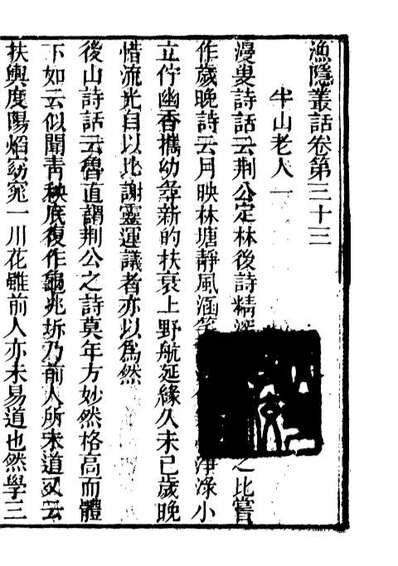 漁隱叢話卷第三十三
半山老人一
漫叟詩話云荆公定林後詩精深之比嘗
作歲晚詩云月映林塘靜風涵淨淥小
立佇幽香攜幼尋新的扶衰上野航延緣久未已歲晚
惜流光自以比謝靈運議者亦以爲然
後山詩話云魯直謂荆公之詩莫年方妙然格高而體
下如云似聞青秧底復作龜兆坼乃前人所未道又云
扶輿度陽焰窈窕一川花雖前人亦未易道也然學三